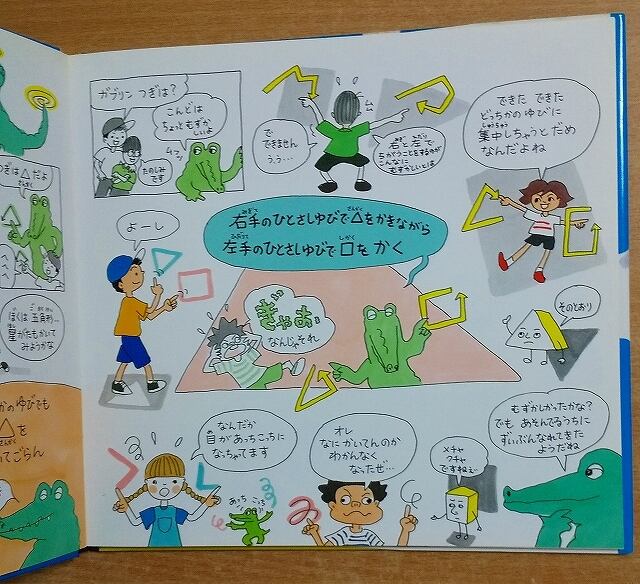 ガブリン つぎは？
こんどは
ちょっとむずか
しいよ
たのしみ
です
ムフッ
で
できません
うぅ…
ムム
右と左で
ちがうことをするのが
こんなに
むずかしいとは
できた できた
どっちかのゆびに
集中しちゃうとだめ
なんだよね
右手のひとさしゆびで△をかきながら
左手のひとさしゆびで□をかく
よーし
ぎゃお
なんじゃそれ
そのとおり
なんだか
目があっちこっちに
なっちゃてます
あっち こっち
オレ
なにかいてんのか
わかんなく
なったぜ…
メチャ
クチャ
ですねぇ
むずかしかったかな？
でも あそんでるうちに
ずいぶんなれてきた
ようだね
つぎは△だよ
へへへ
ぼくは五角形…
星がたもかいて
みようかな
かのゆびでも
△を
いてごらん